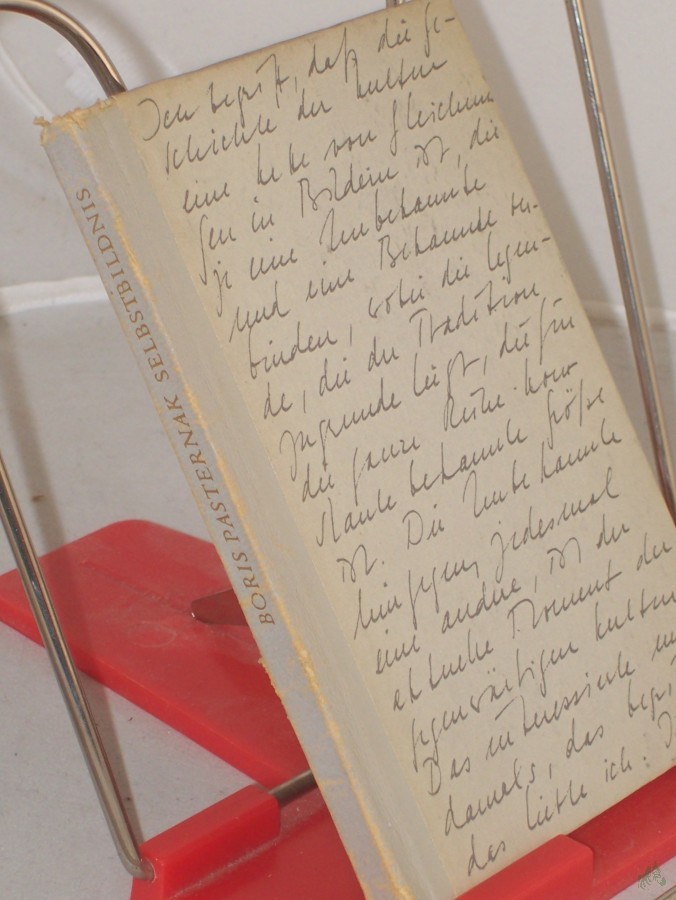 BORIS PASTERNAK SELBSTBILDNIS
Ich begriff, daß die Ge-
schichte der Kultur
eine Kette von Gleichun
gen in Bildern ist, die
je eine Unbekannte
und eine Bekannte ver-
binden, wobei die Legen-
de, die der Tradition
zugrunde liegt, die für
die ganze Reihe kon-
stante bekannte Größe
ist. Die Unbekannte
hingegen, jedesmal
eine andere, ist der
aktuelle Moment der
gegenwärtigen Kultur
Das interessierte
damals, das begri
das liebte ich: